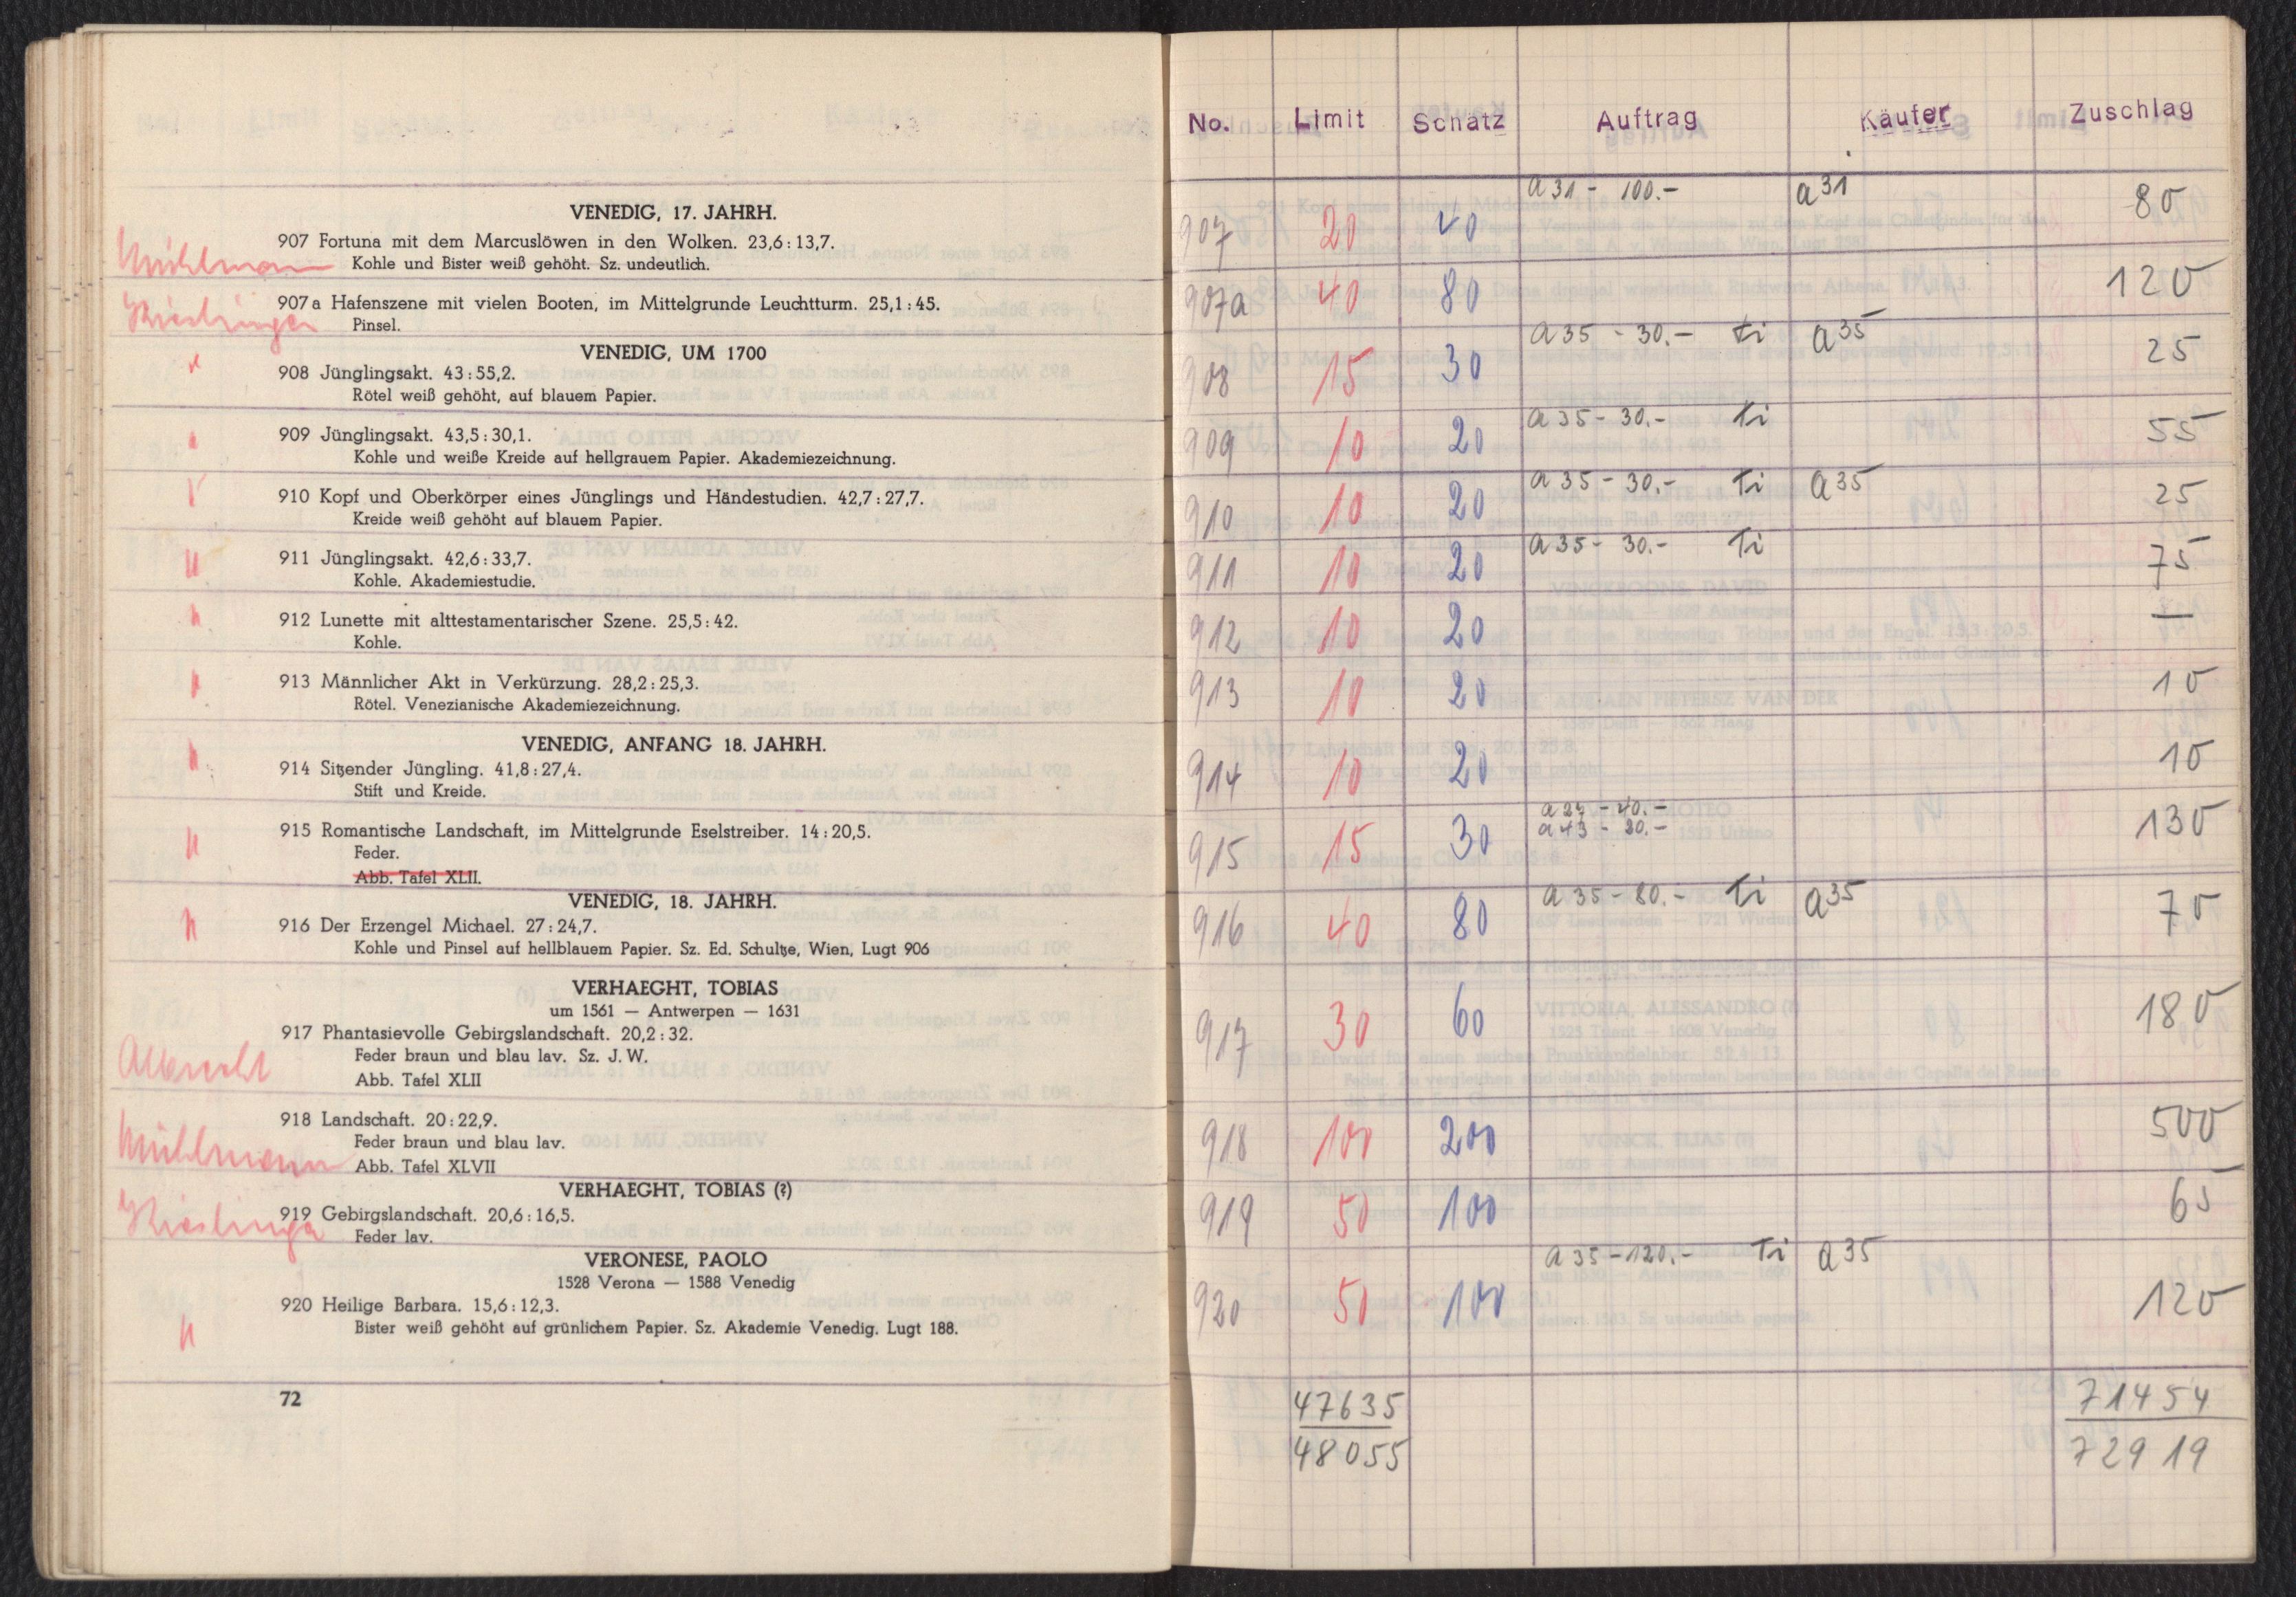 VENEDIG, 17. JAHRH.
907 Fortuna mit dem Marcuslöwen in den Wolken. 23,6 : 13,7.
Mühlmann
Kohle und Bister weiß gehöht. Sz. undeutlich.
907 a Hafenszene mit vielen Booten, im Mittelgrunde Leuchtturm. 25,1 : 45.
Pinsel.
VENEDIG, UM 1700
908 Jünglingsakt. 43 : 55,2.
Rötel weiß gehöht, auf blauem Papier.
909 Jünglingsakt. 43,5 : 30,1.
Kohle und weiße Kreide auf hellgrauem Papier. Akademiezeichnung.
910 Kopf und Oberkörper eines Jünglings und Händestudien. 42,7 : 27,7.
Kreide weiß gehöht auf blauem Papier.
911 Jünglingsakt. 42,6 : 33,7.
Kohle. Akademiestudie.
912 Lunette mit alttestamentarischer Szene. 25,5 : 42.
Kohle.
913 Männlicher Akt in Verkürzung. 28,2 : 25,3.
Rötel. Venezianische Akademiezeichnung.
VENEDIG, ANFANG 18. JAHRH.
914 Sitzender Jüngling. 41,8 : 27,4.
Stift und Kreide.
915 Romantische Landschaft, im Mittelgrunde Eselstreiber. 14 : 20,5.
Feder.
Abb. Tafel XLII.
VENEDIG, 18. JAHRH.
916 Der Erzengel Michael. 27 : 24,7.
Kohle und Pinsel auf hellblauem Papier. Sz. Ed. Schultze, Wien, Lugt 906
VERHAEGHT, TOBIAS
um 1561 — Antwerpen — 1631
917 Phantasievolle Gebirgslandschaft. 20,2 : 32.
Feder braun und blau lav. Sz. J. W.
Albrecht
Abb. Tafel XLII
918 Landschaft. 20 : 22,9.
Feder braun und blau lav.
Mühlmann
Abb. Tafel XLVII
VERHAEGHT, TOBIAS (?)
919 Gebirgslandschaft. 20,6 : 16,5.
Feder lav.
VERONESE, PAOLO
1528 Verona — 1588 Venedig
920 Heilige Barbara. 15,6 : 12,3.
Bister weiß gehöht auf grünlichem Papier. Sz. Akademie Venedig. Lugt 188.
72
No. Limit Schätz Auftrag Käufer Zuschlag
907 20 40 a 31 - 100.- a 31 80
907a 40 80 120
908 15 30 a 35 - 30.- Ti a 35 25
909 10 20 a 35 - 30.- Ti 55
910 10 20 a 35 - 30.- Ti a 35 25
911 10 20 a 35 - 30.- Ti 75
912 10 20 —
913 10 20 10
914 10 20 10
915 15 30 a 27 - 40.- 130
a 43 - 20.-
916 40 80 a 35 - 80.- Ti a 35 70
917 30 60 180
918 100 200 500
919 50 100 65
920 50 100 a 35 - 120.- Ti a 35 120
47635 71454
48055 72919